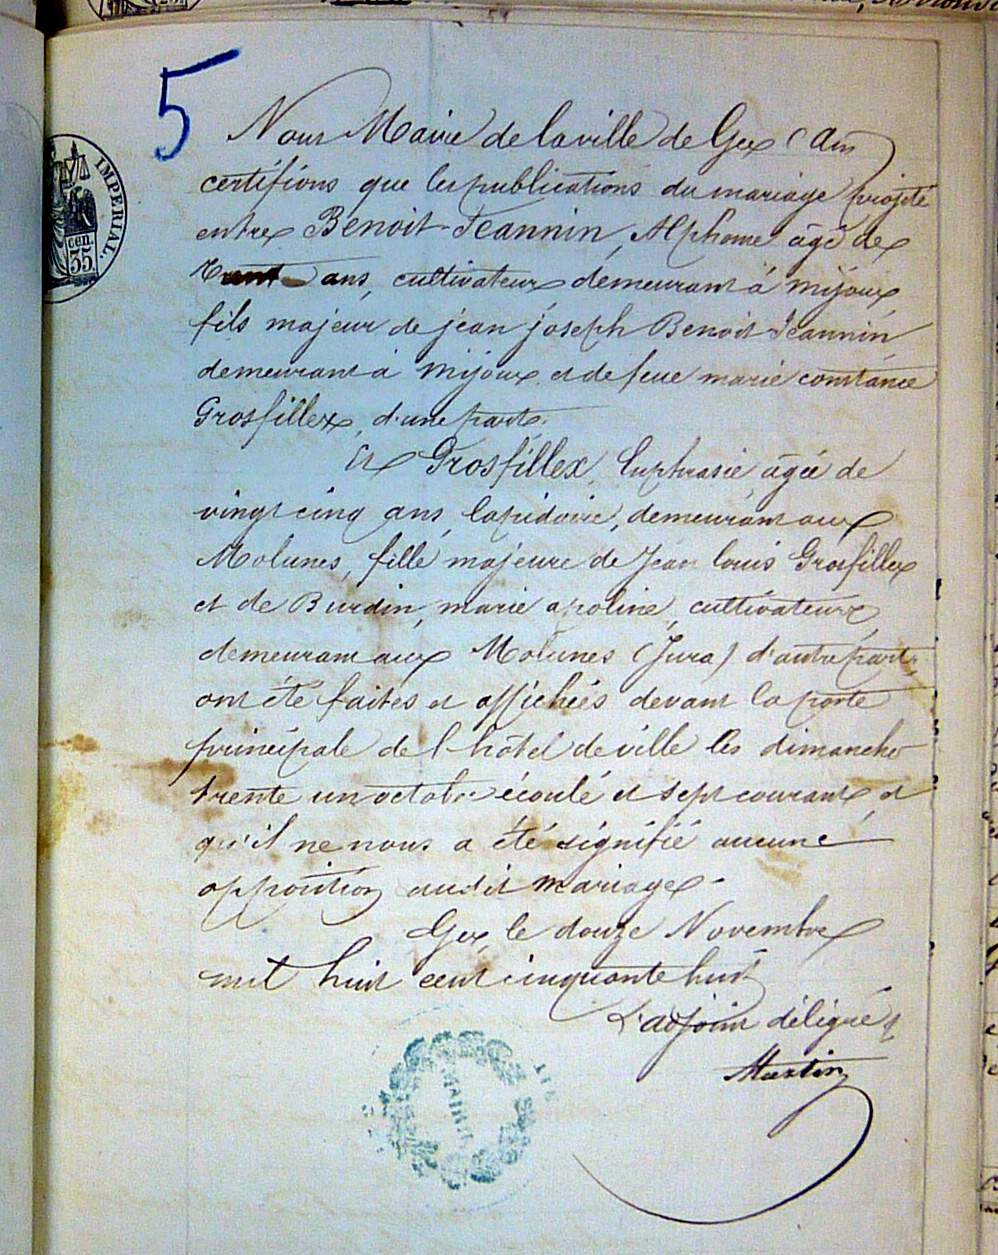 5
IMPERIAL.
cen.
35
Nous Maire de la ville de Gex (Ain)
certifions que les publications du mariage projeté
entre Benoit-Jeannin, Alphonse âgé de
ans, cultivateur demeurant à Mijoux,
fils majeur de jean joseph Benoit Jeannin
demeurant à Mijoux et de feue marie constance
Grosfillex, d'une part.
Et Grosfillex, Euphrasie âgée de
vingt cinq ans, lapidaire, demeurant aux
Molunes, fille majeure de Jean louis Grosfillex
et de Burdin, marie apoline, cultivateurs,
demeurant aux Molunes (Jura) d'autre part,
ont été faites et affichées devant la porte
principale de l'hôtel de ville les dimanche
trente un octobre écoulé et sept courant, et
qu'il ne nous a été signifié aucune
opposition audit mariage.
Gex, le douze Novembre
mil huit cent cinquante huit
L'adjoint délégué
Martin
MAIRIE